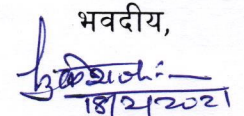 भवदीय,
18/2/2021